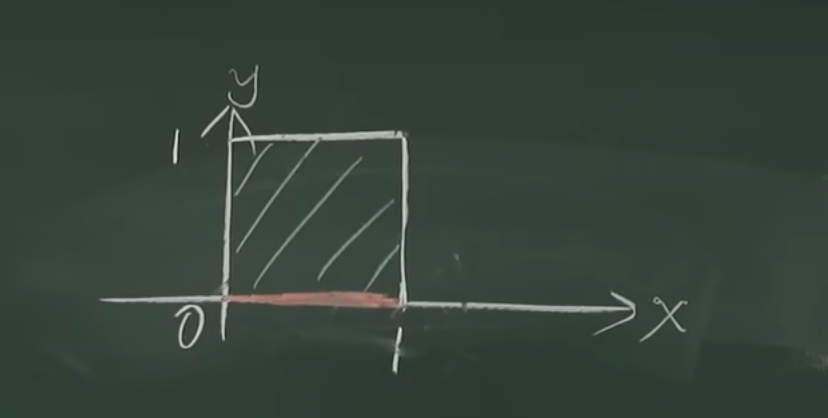 y
1
0
1
x